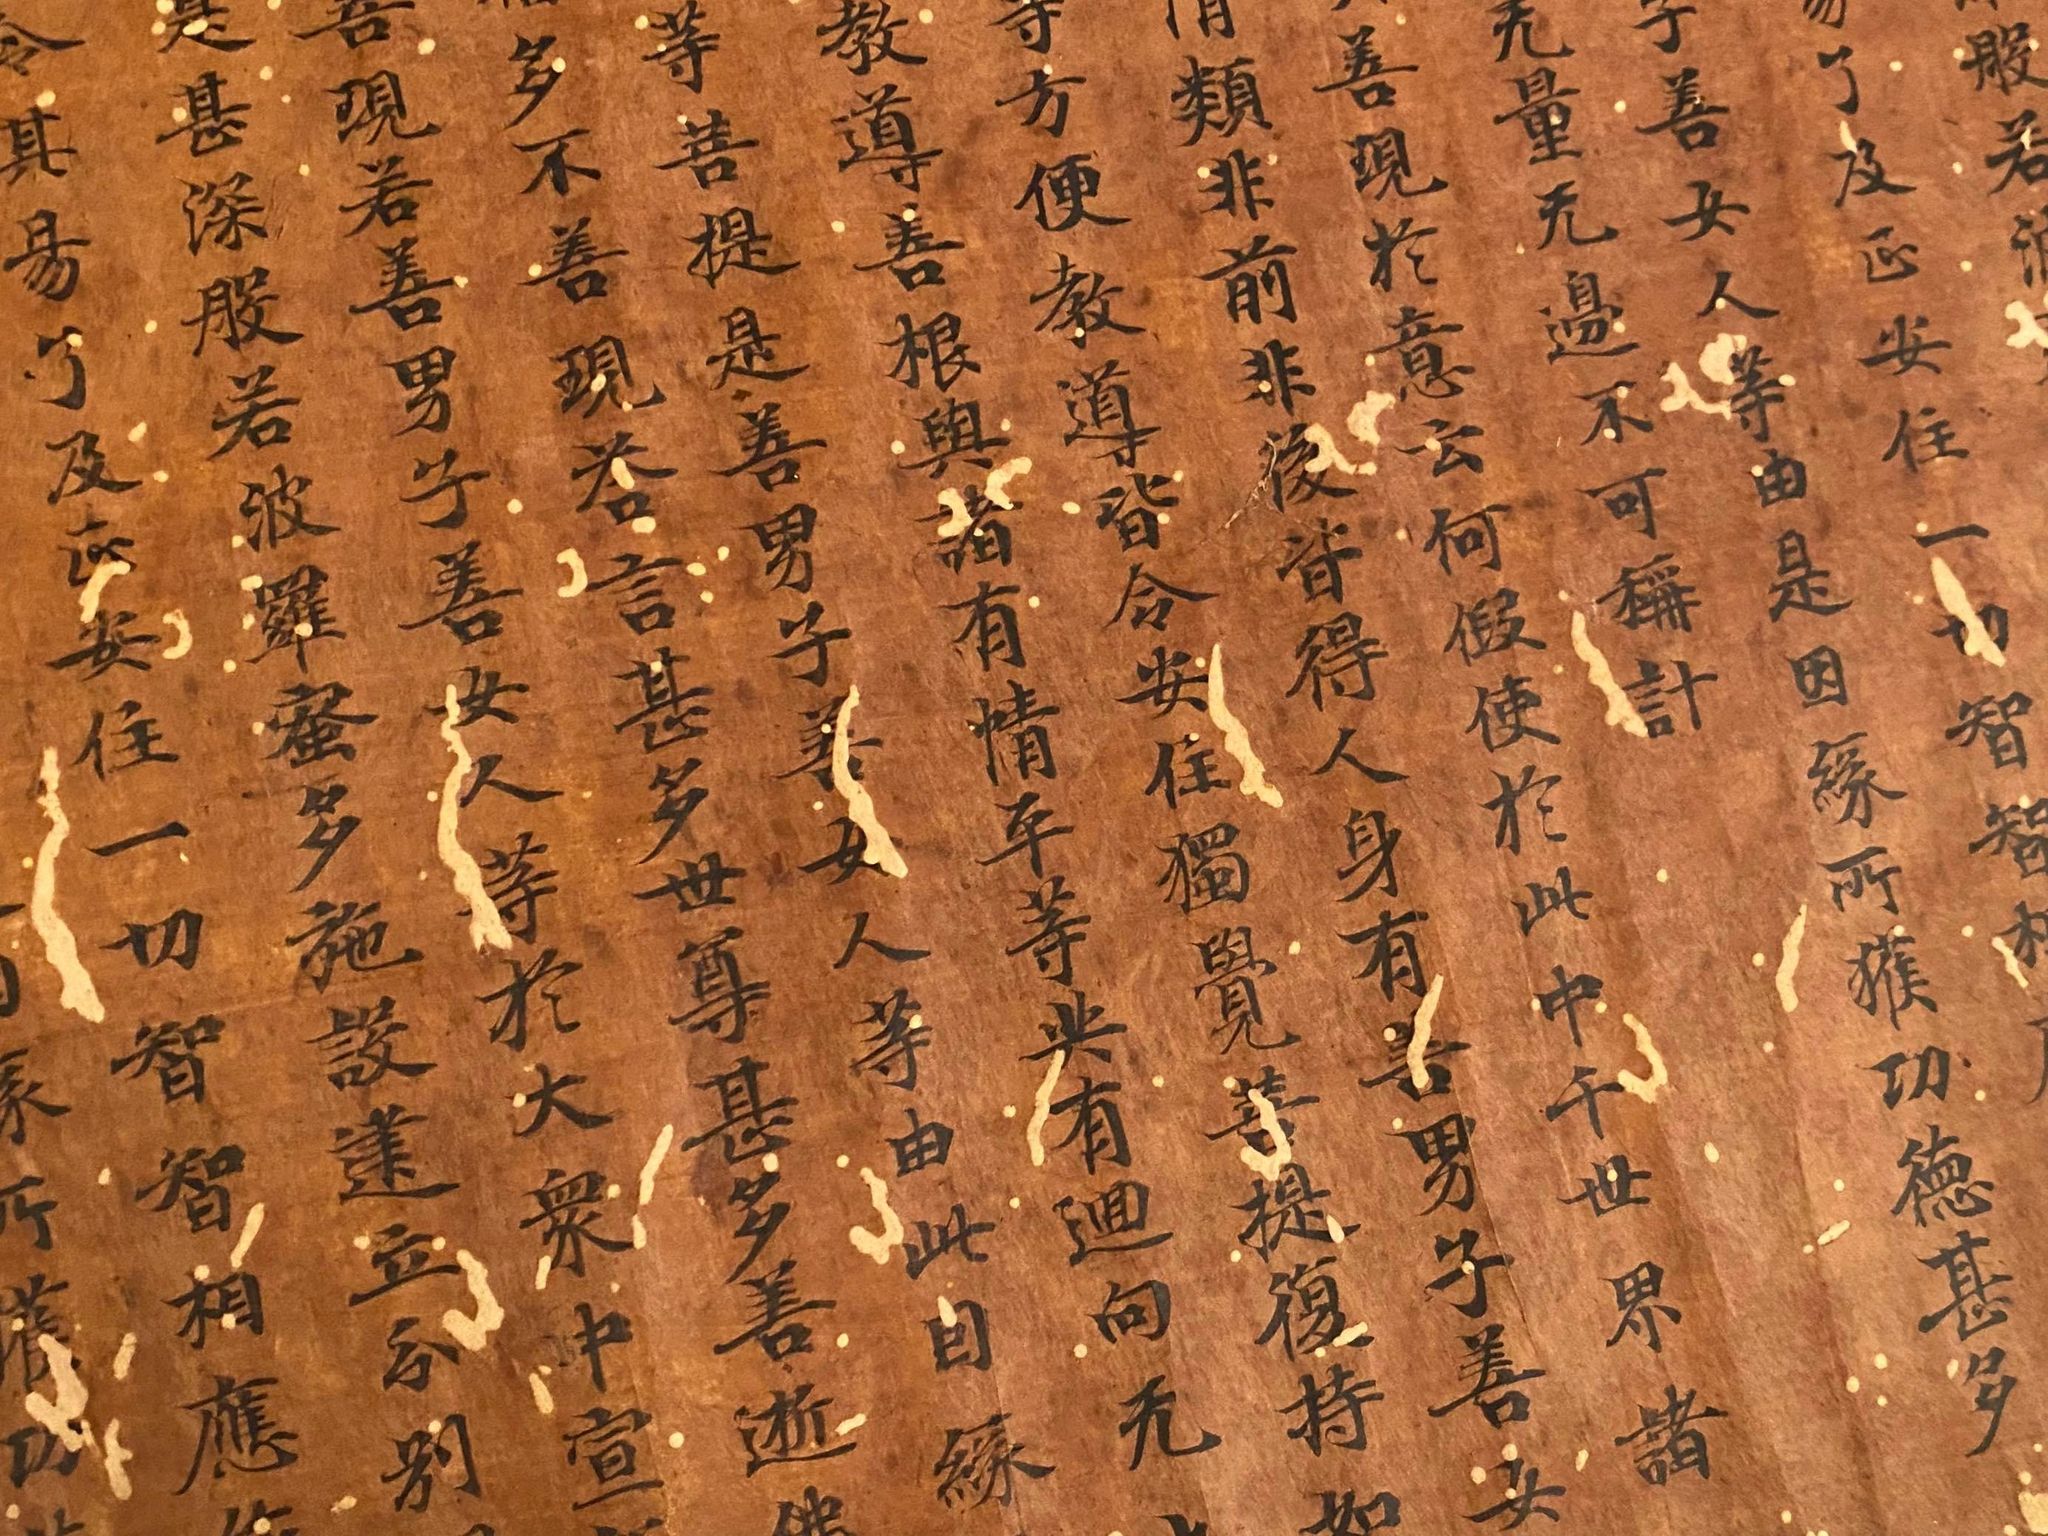 般若波
易了及正安住一切智智相
子善女人等由是因緣所獲功德甚多
无量无邊不可稱計
善現於意云何假使於此中千世界諸
情類非前非後皆得人身有善男子善女
等方便教導皆令安住獨覺菩提復持如
教導善根與諸有情平等共有迴向无
等菩提是善男子善女人等由此因緣
多不善現答言甚多世尊甚多善逝佛
善現若善男子善女人等於大衆中宣
是甚深般若波羅蜜多施設建立分別
令其易了及正安住一切智智相應
因緣所獲功